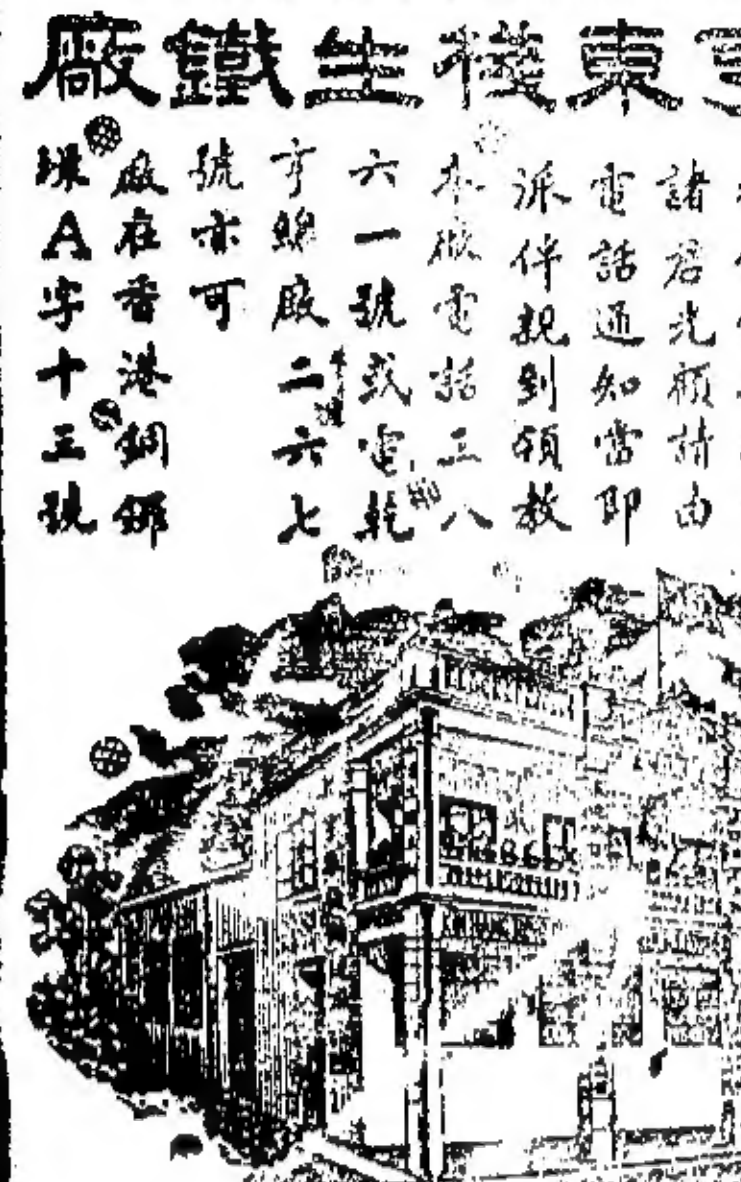 東棧生鐵廠
諸君光顧請由
電話通知當即
派伴親到領教
本廠電話三八
六一號或電乾
亨總廠二六七
號亦可
廠在香港銅鑼
環A字十三號